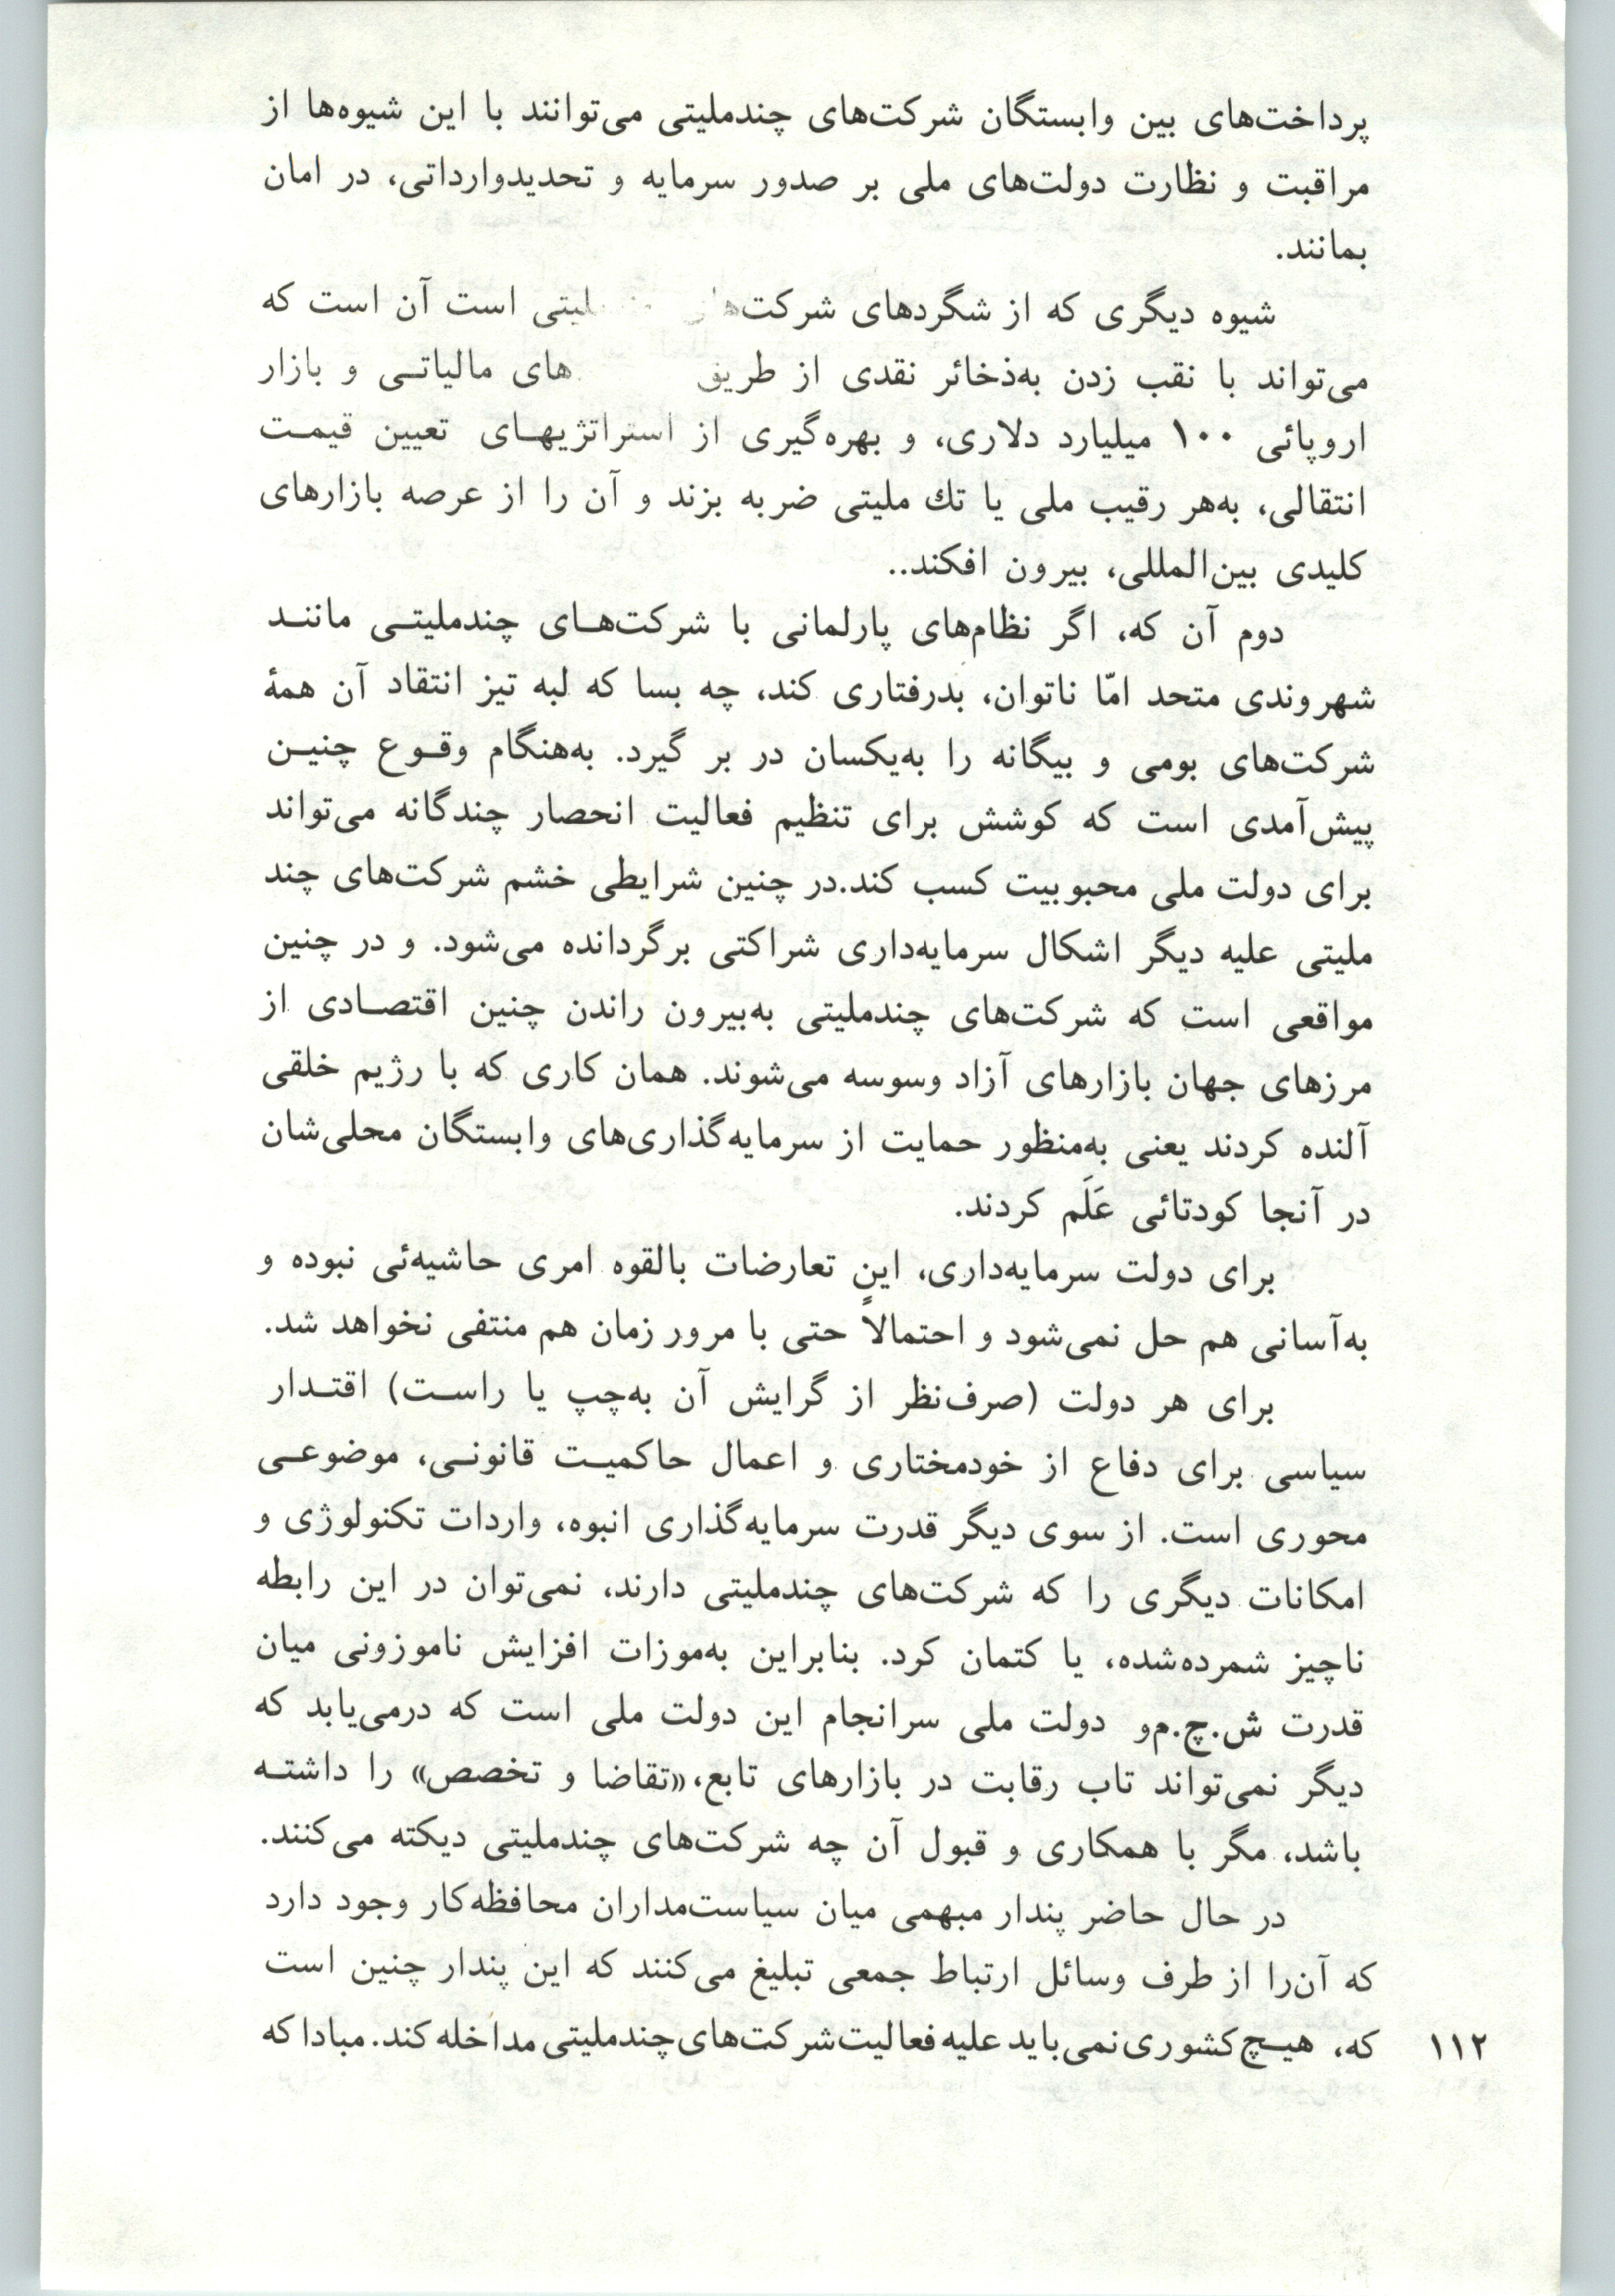 پرداخت‌های بین وابستگان شرکت‌های چندملیتی می‌توانند با این شیوه‌ها از
مراقبت و نظارت دولت‌های ملی بر صدور سرمایه و تحدیدوارداتی، در امان
بمانند.
شیوه دیگری که از شگردهای شرکت‌های لیتی است آن است که
می‌تواند با نقب زدن به‌ذخائر نقدی از طریق های مالیاتـی و بازار
اروپائی ۱۰۰ میلیارد دلاری، و بهره‌گیری از استراتژیهـای تعیین قیمـت
انتقالی، به‌هر رقیب ملی یا تك ملیتی ضربه بزند و آن را از عرصه بازارهای
کلیدی بین‌المللی، بیرون افکند..
دوم آن که، اگر نظام‌های پارلمانی با شرکت‌هـای چندملیتـی ماننـد
شهروندی متحد امّا ناتوان، بدرفتاری کند، چه بسا که لبه تیز انتقاد آن همهٔ
شرکت‌های بومی و بیگانه را به‌یکسان در بر گیرد. به‌هنگام وقـوع چنیـن
پیش‌آمدی است که کوشش برای تنظیم فعالیت انحصار چندگانه می‌تواند
برای دولت ملی محبوبیت کسب کند.در چنین شرایطی خشم شرکت‌های چند
ملیتی علیه دیگر اشکال سرمایه‌داری شراکتی برگردانده می‌شود. و در چنین
مواقعی است که شرکت‌های چندملیتی به‌بیرون راندن چنین اقتصـادی از
مرزهای جهان بازارهای آزاد وسوسه می‌شوند. همان کاری که با رژیم خلقی
آلنده کردند یعنی به‌منظور حمایت از سرمایه‌گذاری‌های وابستگان محلی‌شان
در آنجا کودتائی عَلَم کردند.
برای دولت سرمایه‌داری، این تعارضات بالقوه امری حاشیه‌ئی نبوده و
به‌آسانی هم حل نمی‌شود و احتمالاً حتی با مرور زمان هم منتفی نخواهد شد.
برای هر دولت (صرف‌نظر از گرایش آن به‌چپ یا راسـت) اقتـدار
سیاسی برای دفاع از خودمختاری و اعمال حاکمیـت قانونـی، موضوعـی
محوری است. از سوی دیگر قدرت سرمایه‌گذاری انبوه، واردات تکنولوژی و
امکانات دیگری را که شرکت‌های چندملیتی دارند، نمی‌توان در این رابطه
ناچیز شمرده‌شده، یا کتمان کرد. بنابراین به‌موزات افزایش ناموزونی میان
قدرت ش.چ.م‌و دولت ملی سرانجام این دولت ملی است که درمی‌یابد که
دیگر نمی‌تواند تاب رقابت در بازارهای تابع،«تقاضا و تخصص» را داشتـه
باشد، مگر با همکاری و قبول آن چه شرکت‌های چندملیتی دیکته می‌کنند.
در حال حاضر پندار مبهمی میان سیاست‌مداران محافظه‌کار وجود دارد
که آن‌را از طرف وسائل ارتباط جمعی تبلیغ می‌کنند که این پندار چنین است
که، هیـچ کشوری نمی‌باید علیه فعالیت شرکت‌های چندملیتی مداخله کند. مبادا که
۱۱۲